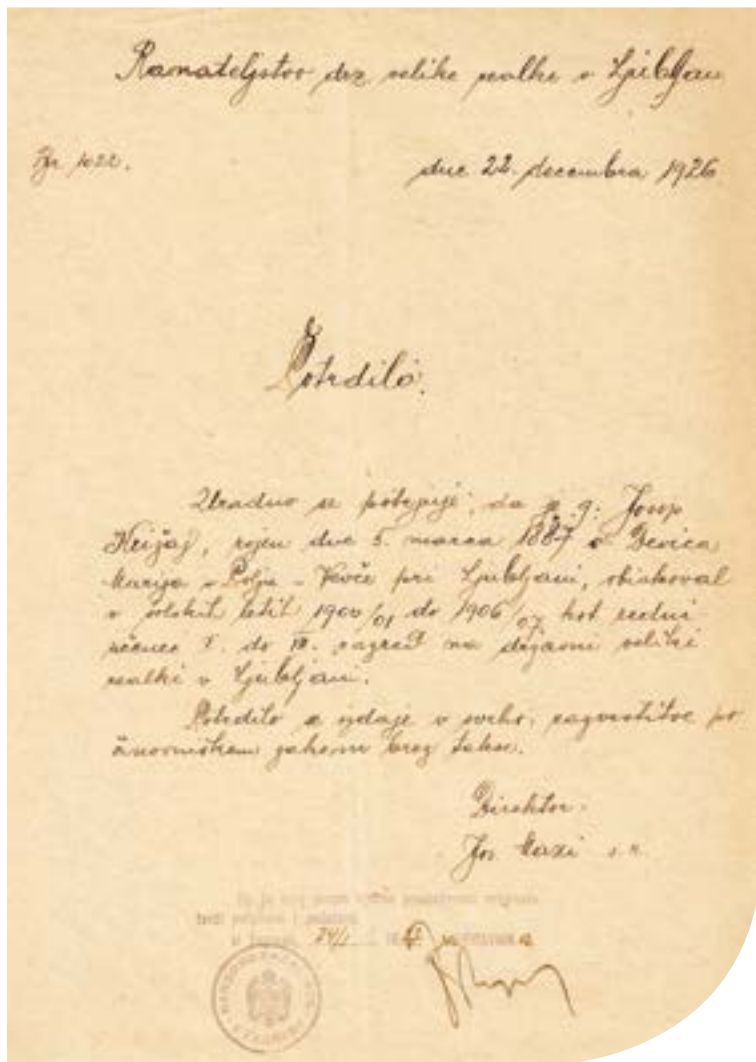 Ravnateljstvo drž velike realke v Ljubljani
dne 22. decembra 1926
Potrdilo.
Uradno se potrjuje, da je g. Josip
Križaj, rojen dne 5. marca 1887 v Devica
Marija v Polju - Vevče pri Ljubljani, obiskoval
v šolskih letih 1900/01 do 1906/07 kot redni
učenec I. do VII. razred na državni veliki
realki v Ljubljani.
Potrdilo se izdaje v svrho razvrstitve po
činovniškem zakonu brez takse.
Direktor
Jos. Mazi s. r.